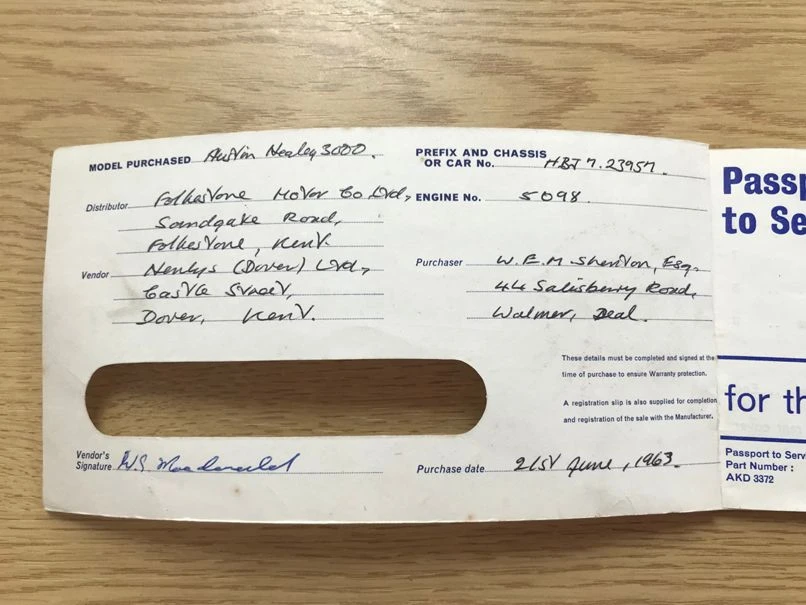 MODEL PURCHASED Austin Healey 3000.
PREFIX AND CHASSIS
OR CAR No. HBJ 7.23957.
Distributor Folkestone Motor Co Ltd,
Sandgate Road,
Folkestone, Kent.
ENGINE No. 5098.
Vendor Henlys (Dover) Ltd,
Castle Street,
Dover, Kent.
Purchaser W.E.M Shenton, Esq.
44 Salisberry Road,
Walmer, Deal.
These details must be completed and signed at the
time of purchase to ensure Warranty protection.
A registration slip is also supplied for completion
and registration of the sale with the Manufacturer.
Vendor's
Signature
Purchase date 21st June, 1963.
Passp
to Se
for th
Passport to Servi
Part Number :
AKD 3372